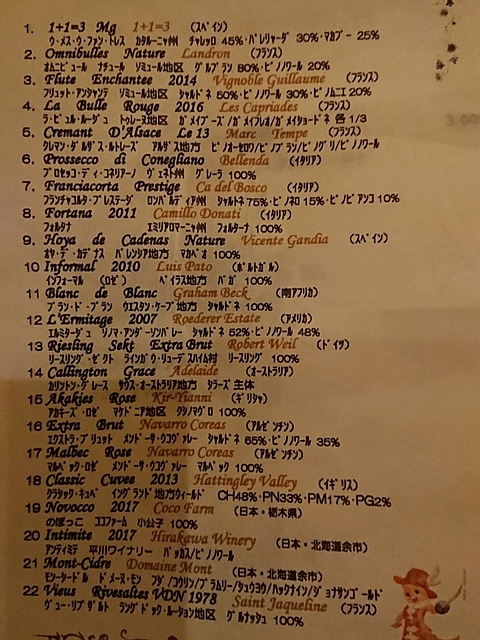 1. 1+1=3 Mg 1+1=3 (スペイン)
ウ・メス・ウ・ファン・トレス カタルーニャ州 チャレロ 45%・パレリャーダ 30%・マカブー 25%
2. Omnibulles Nature Landron (フランス)
オムニビュール ナチュール リミュール地区 グルブラン 80%・ピノノワール 20%
3. Flute Enchantee 2014 Vignoble Guillaume (フランス)
フリュット・アンシャンテ リミュール地区 シャルドネ 50%・ピノノワール 30%・ピノムニエ 20%
4. La Bulle Rouge 2016 Les Capriades (フランス)
ラ・ビュル・ルージュ トゥレーヌ地区 ガメイブーズ/ガメイフレオ/ガメイショードネ 各 1/3
5. Cremant D'Alsace Le 13 Marc Tempe (フランス)
クレマン・ダルザス・ルトレーズ アルザス地方 ピノオーセロワ/ピノブラン/ピノグリ/ピノノワール
6. Prossecco di Conegliano Bellenda (イタリア)
プロセッコ・ディ・コネリアーノ ヴェネト州 グレーラ 100%
7. Franciacorta Prestige Ca del Bosco (イタリア)
フランチャコルタ・プレステージ ロンバルディア州 シャルドネ 75%・ピノネロ 15%・ピノビアンコ 10%
8. Fortana 2011 Camillo Donati (イタリア)
フォルタナ エミリアロマーニャ州 フォルターナ 100%
9. Hoya de Cadenas Nature Vicente Gandia (スペイン)
オヤ・デ・カデナス バレンシア地方 マカベオ 100%
10 Informal 2010 Luis Pato (ポルトガル)
インフォーマル (ロゼ) ベイラス地方 バガ 100%
11 Blanc de Blanc Graham Beck (南アフリカ)
ブラン・ド・ブラン ウエスタン・ケープ地方 シャルドネ 100%
12 L'Ermitage 2007 Roederer Estate (アメリカ)
エルミタージュ ソノマ・アンダーソンバレー シャルドネ 52%・ピノノワール 48%
13 Riesling Sekt Extra Brut Robert Weil (ドイツ)
リースリング・ゼクト ラインガウ・リューデスハイム村 リースリング 100%
14 Callington Grace Adelaide (オーストラリア)
カリントン・グレース サウス・オーストラリア地方 シラーズ 主体
15 Akakies Rose Kir-Yianni (ギリシャ)
アカキーズ・ロゼ マケドニア地区 クシノマヴロ 100%
16 Extra Brut Navarro Coreas (アルゼンチン)
エクストラ・ブリュット メンドーサ・ウコヴァレー シャルドネ 65%・ピノノワール 35%
17 Malbec Rose Navarro Coreas (アルゼンチン)
マルベック・ロゼ メンドーサ・ウコヴァレー マルベック 100%
18 Classic Cuvee 2013 Hattingley Valley (イギリス)
クラシック・キュベ イングランド地方ウィールド CH48%・PN33%・PM17%・PG2%
19 Novocco 2017 Coco Farm (日本・栃木県)
のぼっこ ココファーム 小公子 100%
20 Intimite 2017 Hirakawa Winery (日本・北海道余市)
アンティミテ 平川ワイナリー バッカス/ピノノワール
21 Mont-Cidre Domaine Mont (日本・北海道余市)
モンシードル ドメーヌ・モン フジ/コウリン/ブラムリー/シュウヨウ/ハックナイン/ジョナサンゴールド
22 Vieus Rivesaltes VDN 1978 Saint Jaqueline (フランス)
ヴュー・リブザルト ラングドック・ルーション地区 グルナッシュ 100%